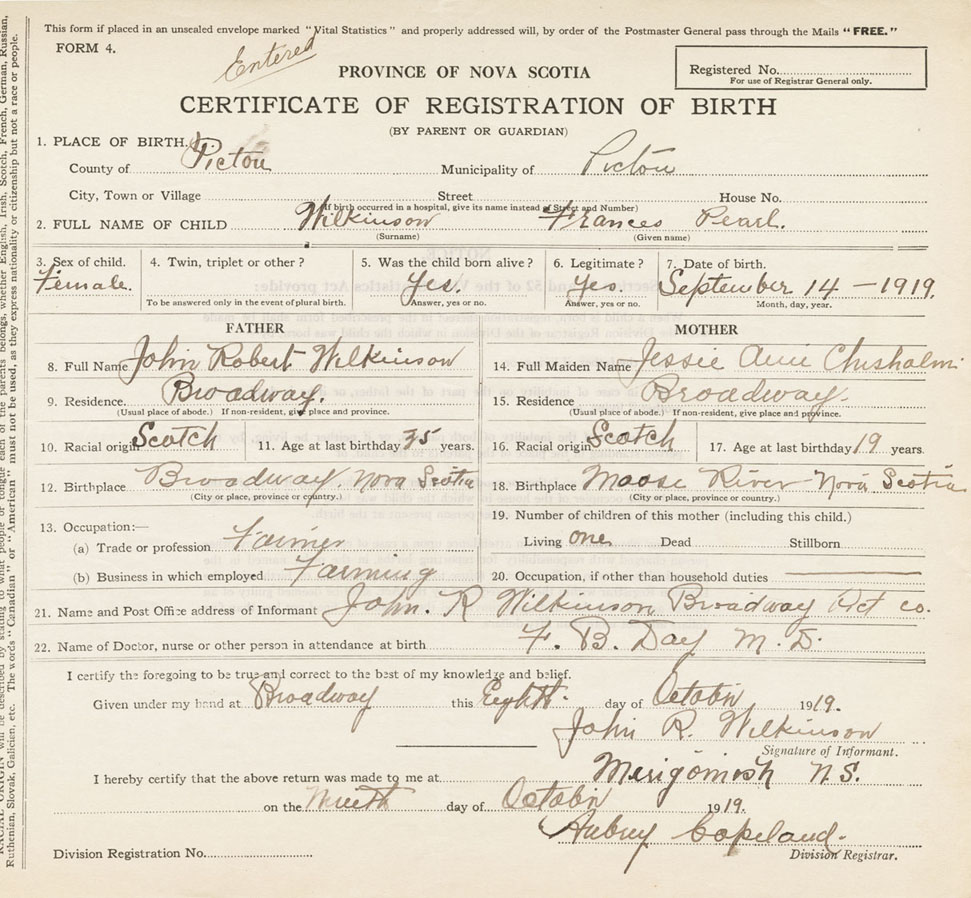 This form if placed in an unsealed envelope marked "Vital Statistics" and properly addressed will, by order of the Postmaster General pass through the Mails "FREE."
FORM 4.
Entered
Registered No.
For use of Registrar General only.
PROVINCE OF NOVA SCOTIA
CERTIFICATE OF REGISTRATION OF BIRTH
(BY PARENT OR GUARDIAN)
1. PLACE OF BIRTH.
County of Pictou Municipality of Pictou
City, Town or Village Street House No.
(If birth occurred in a hospital, give its name instead of Street and Number)
2. FULL NAME OF CHILD Wilkinson Frances Pearl.
(Surname) (Given name)
3. Sex of child. 4. Twin, triplet or other? 5. Was the child born alive? 6. Legitimate? 7. Date of birth.
Female. Yes. Yes. September 14 - 1919.
To be answered only in the event of plural birth. Answer, yes or no. Answer, yes or no. Month, day, year.
FATHER MOTHER
8. Full Name John Robert Wilkinson 14. Full Maiden Name Jessie Ann Chisholm
9. Residence. Broadway. 15. Residence Broadway.
(Usual place of abode.) If non-resident, give place and province. (Usual place of abode.) If non-resident, give place and province.
10. Racial origin Scotch 11. Age at last birthday 35 years. 16. Racial origin Scotch 17. Age at last birthday 19 years.
12. Birthplace Broadway. Nova Scotia 18. Birthplace Moose River Nova Scotia
(City or place, province or country.) (City or place, province or country.)
13. Occupation:— 19. Number of children of this mother (including this child.)
(a) Trade or profession Farmer Living one Dead Stillborn
(b) Business in which employed Farming 20. Occupation, if other than household duties
21. Name and Post Office address of Informant John. R Wilkinson Broadway Pict co.
22. Name of Doctor, nurse or other person in attendance at birth F. B. Day M. D.
I certify the foregoing to be true and correct to the best of my knowledge and belief.
Given under my hand at Broadway this Eighth day of October 1919.
John R. Wilkinson
Signature of Informant.
I hereby certify that the above return was made to me at Merigomish N.S.
on the Ninth day of October 1919.
Aubrey Copeland.
Division Registrar.
Division Registration No.
must not be used, as they express nationality or citizenship but not a race or people.
Ruthenian, Slovak, Galicien, etc. The words "Canadian" or "American"